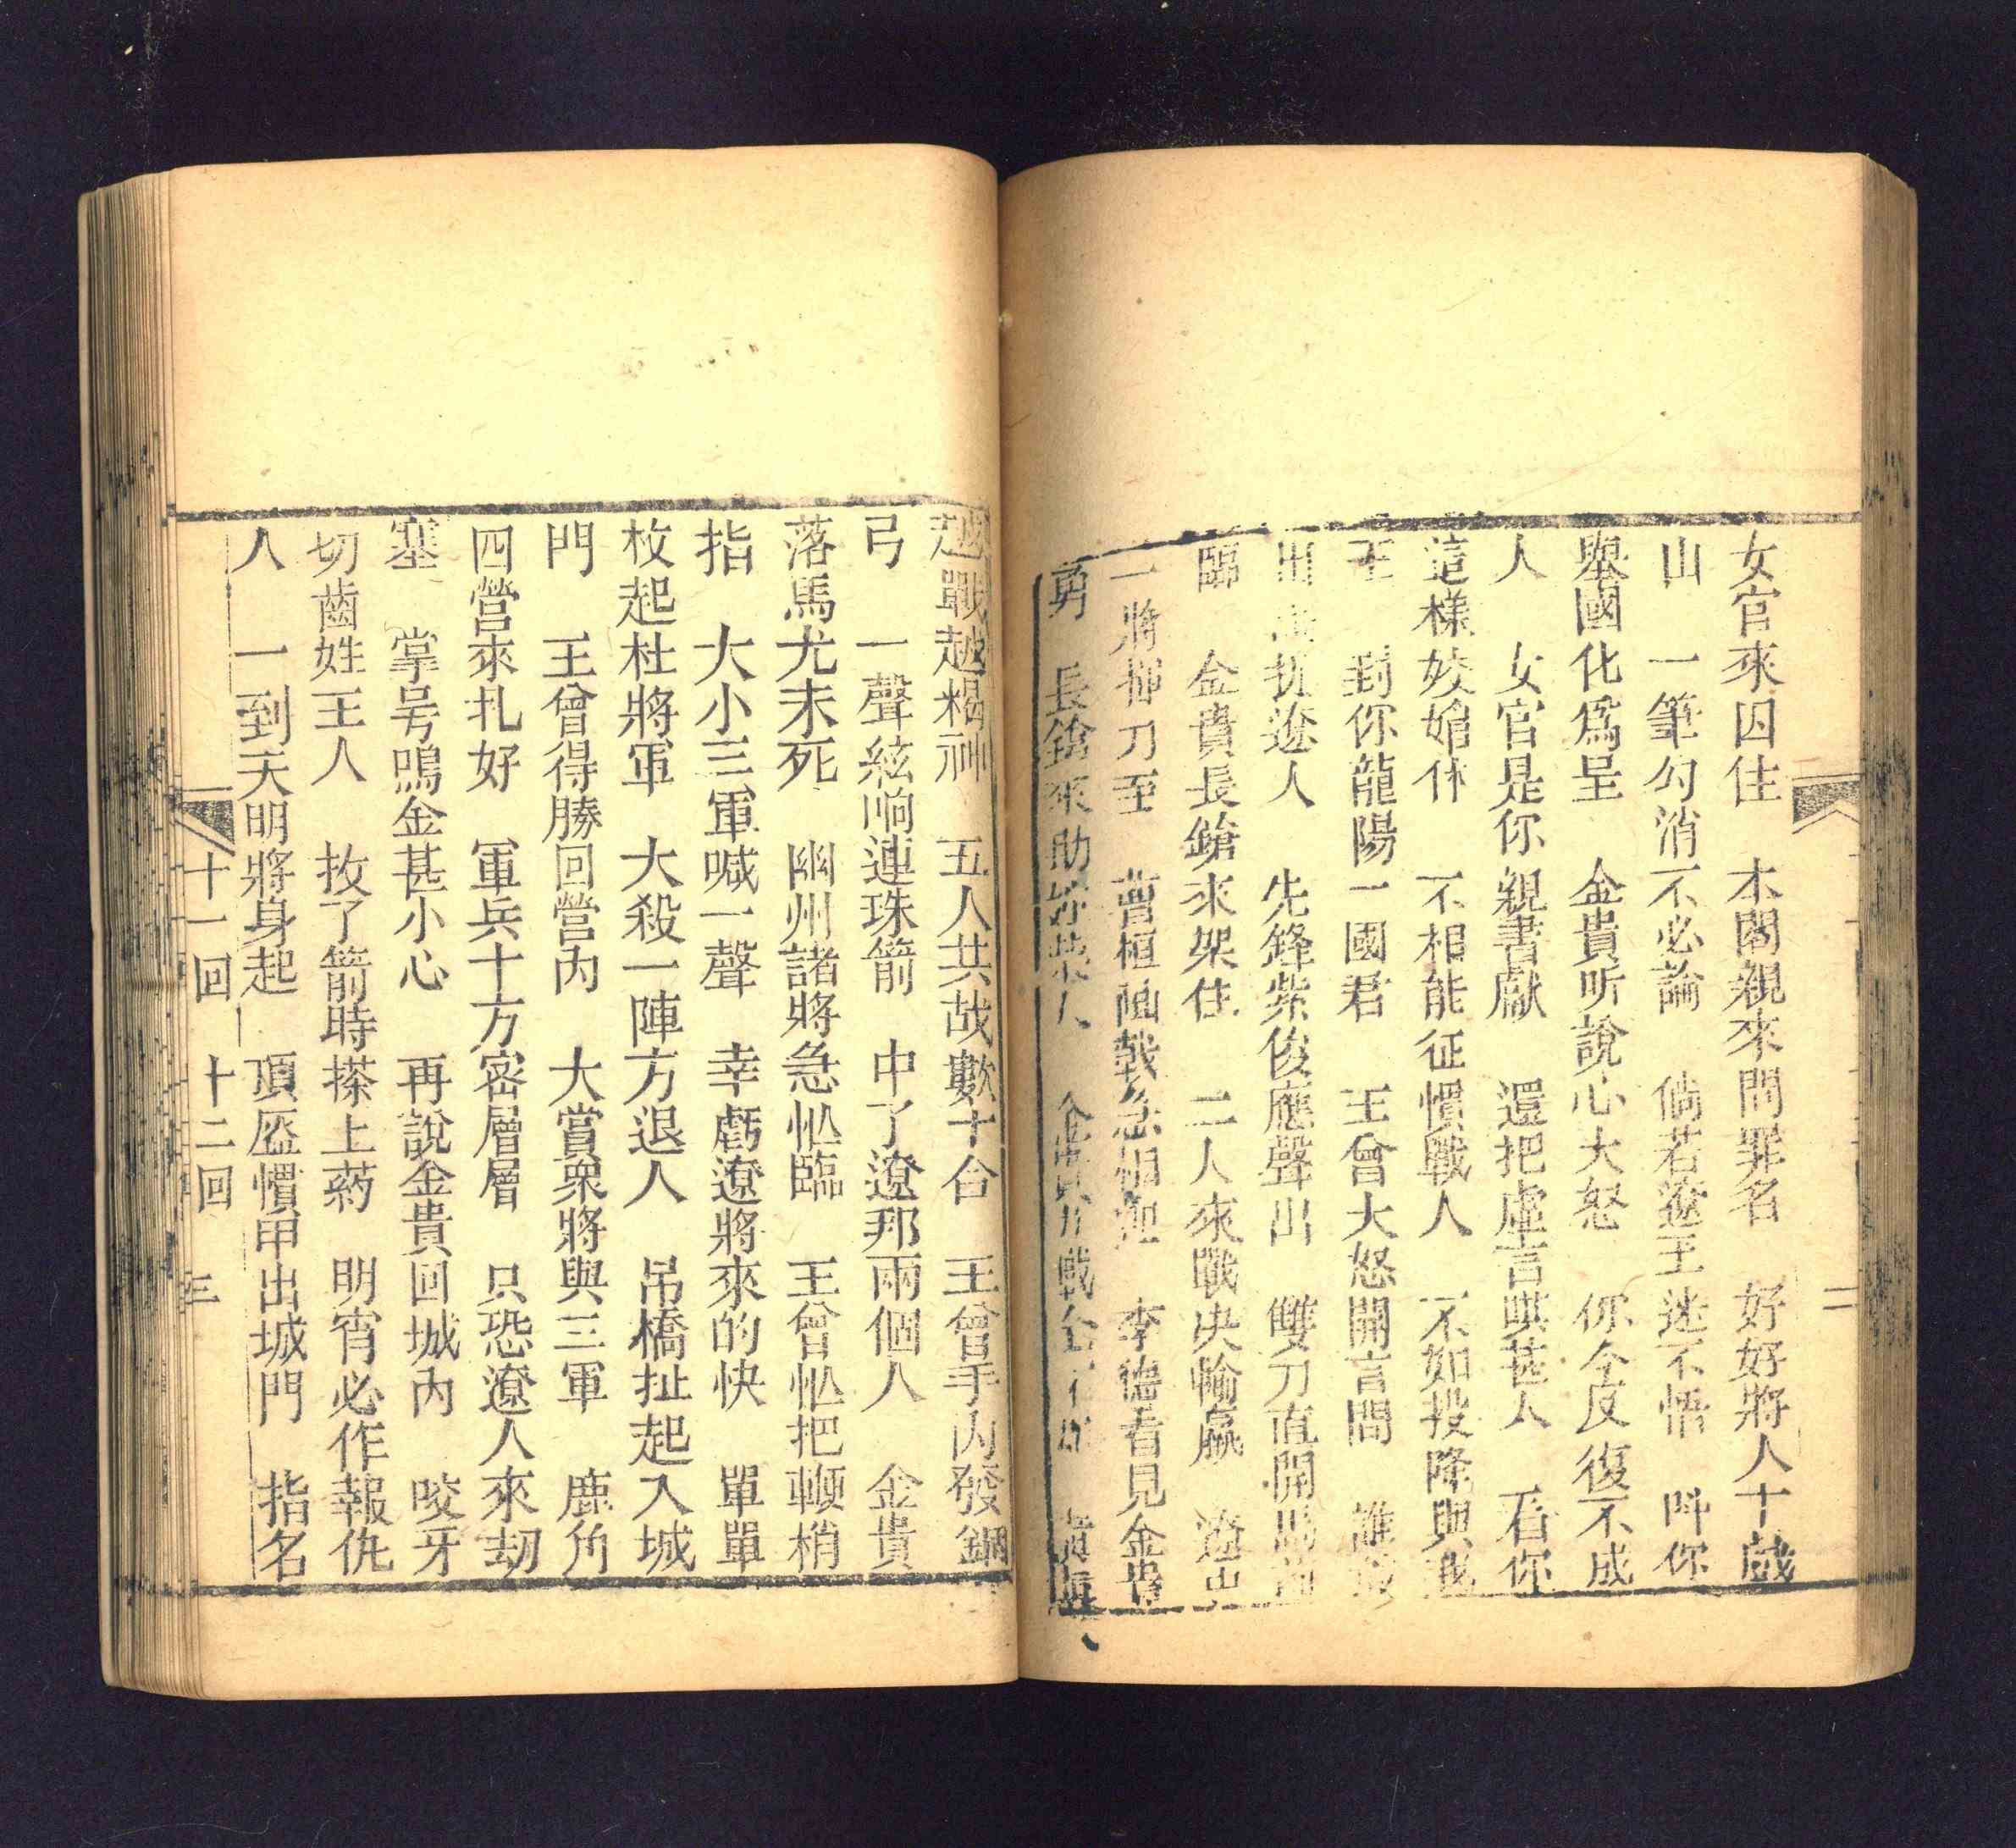 女官來囚住　本閣親來問罪名　好好將人十戯
山　一筆勾消不必論　倘若遼王迷不悟　呌你
舉國化爲呈　金貴听說心大怒　你今反復不成
人　女官是你親書獻　還把虛言哄甚人　看你
這樣姣婠休　不相能征慣戰人　不如投降與我
王　封你龍陽一國君　王曾大怒開言問　誰
出　抓遼人　先鋒紫俊應聲出　雙刀直開馬
臨　金貴長鎗來架住　二人來戰决輸贏　遼
一將揮刀至　曹桓　戟急相迎　李德看見金貴
勇　長鎗來助　人　金貴　戰
越戰越精神　五人共战數十合　王曾手內發鋼
弓　一聲絃响連珠箭　中了遼邦兩個人　金貴
落馬尤未死　幽州諸將急忙臨　王曾忙把鞭梢
指　大小三軍喊一聲　幸虧遼將來的快　單單
枚起杜將軍　大殺一陣方退人　吊橋扯起入城
門　王曾得勝回營內　大賞衆將與三軍　鹿角
四營來扎好　軍兵十方密層層　只恐遼人來刼
塞　掌号鳴金甚小心　再說金貴回城內　咬牙
切齒姓王人　抜了箭時搽上葯　明宵必作報仇
人　一到天明將身起　頂盔慣甲出城門　指名
十一回　十二回　三